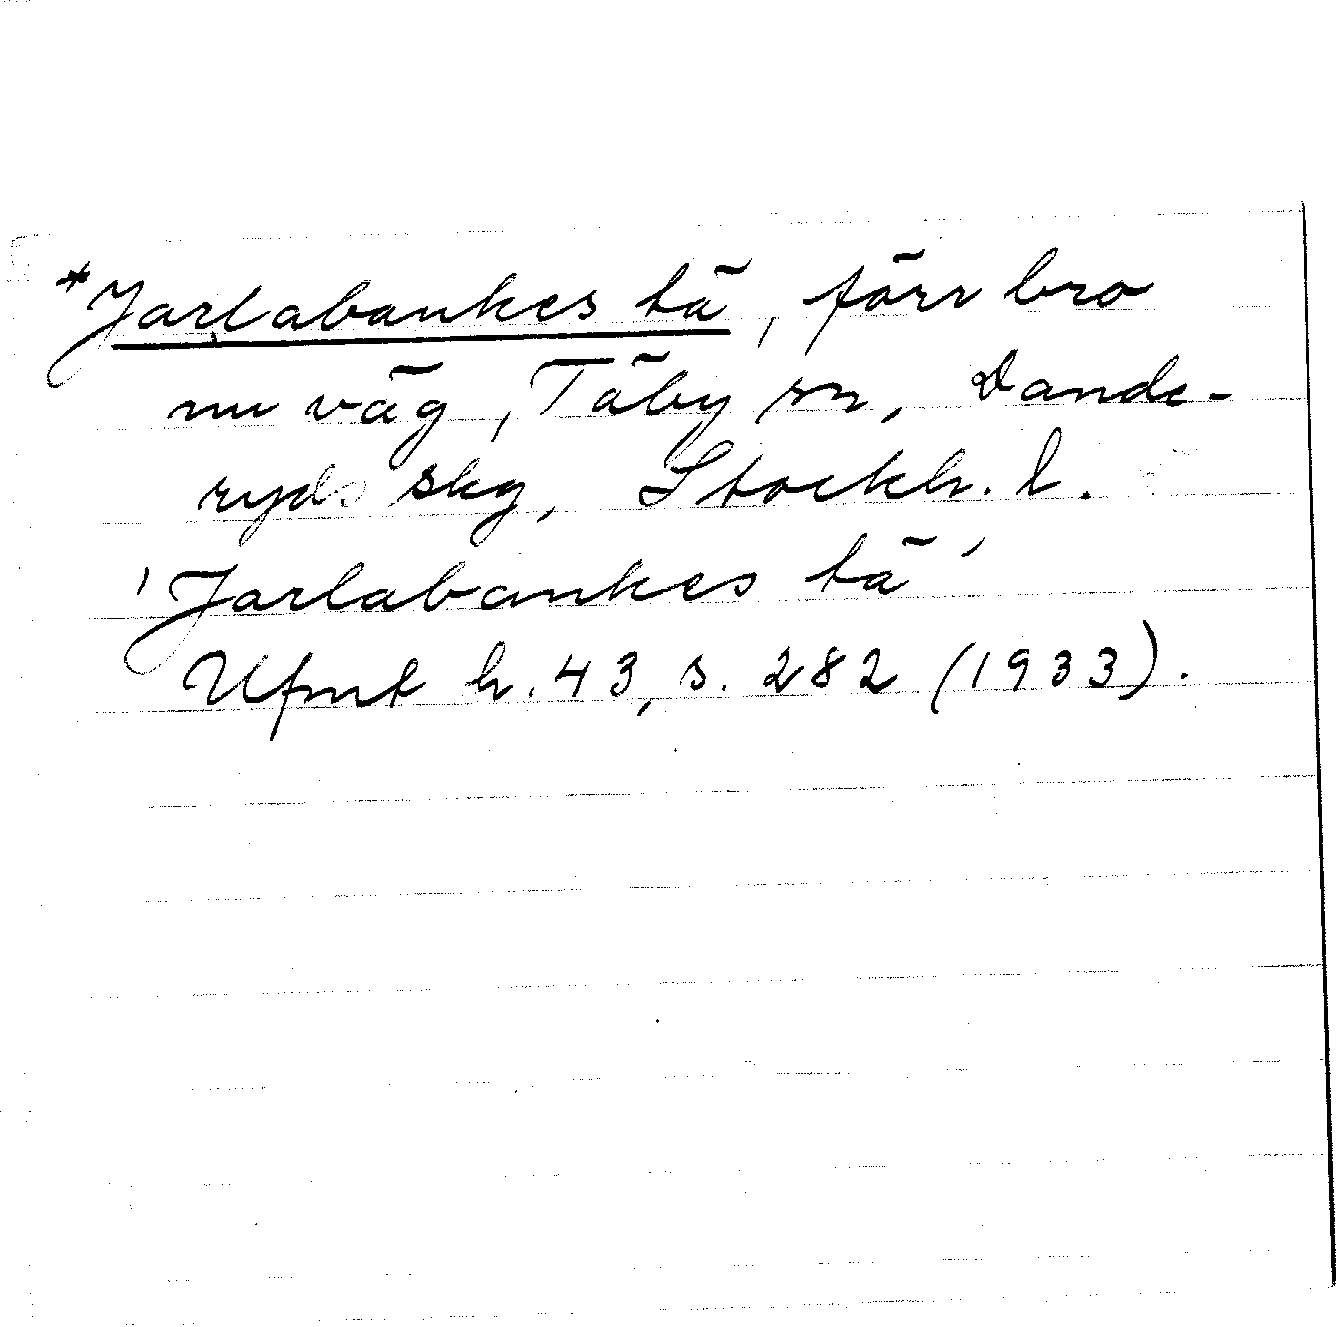 *Jarlabankes tä, förr bro
nu väg, Täby sn, Dande-
ryds skg, Stockh. l.
'Jarlabankes tä'
Ufmt h. 43, s. 282 (1933).